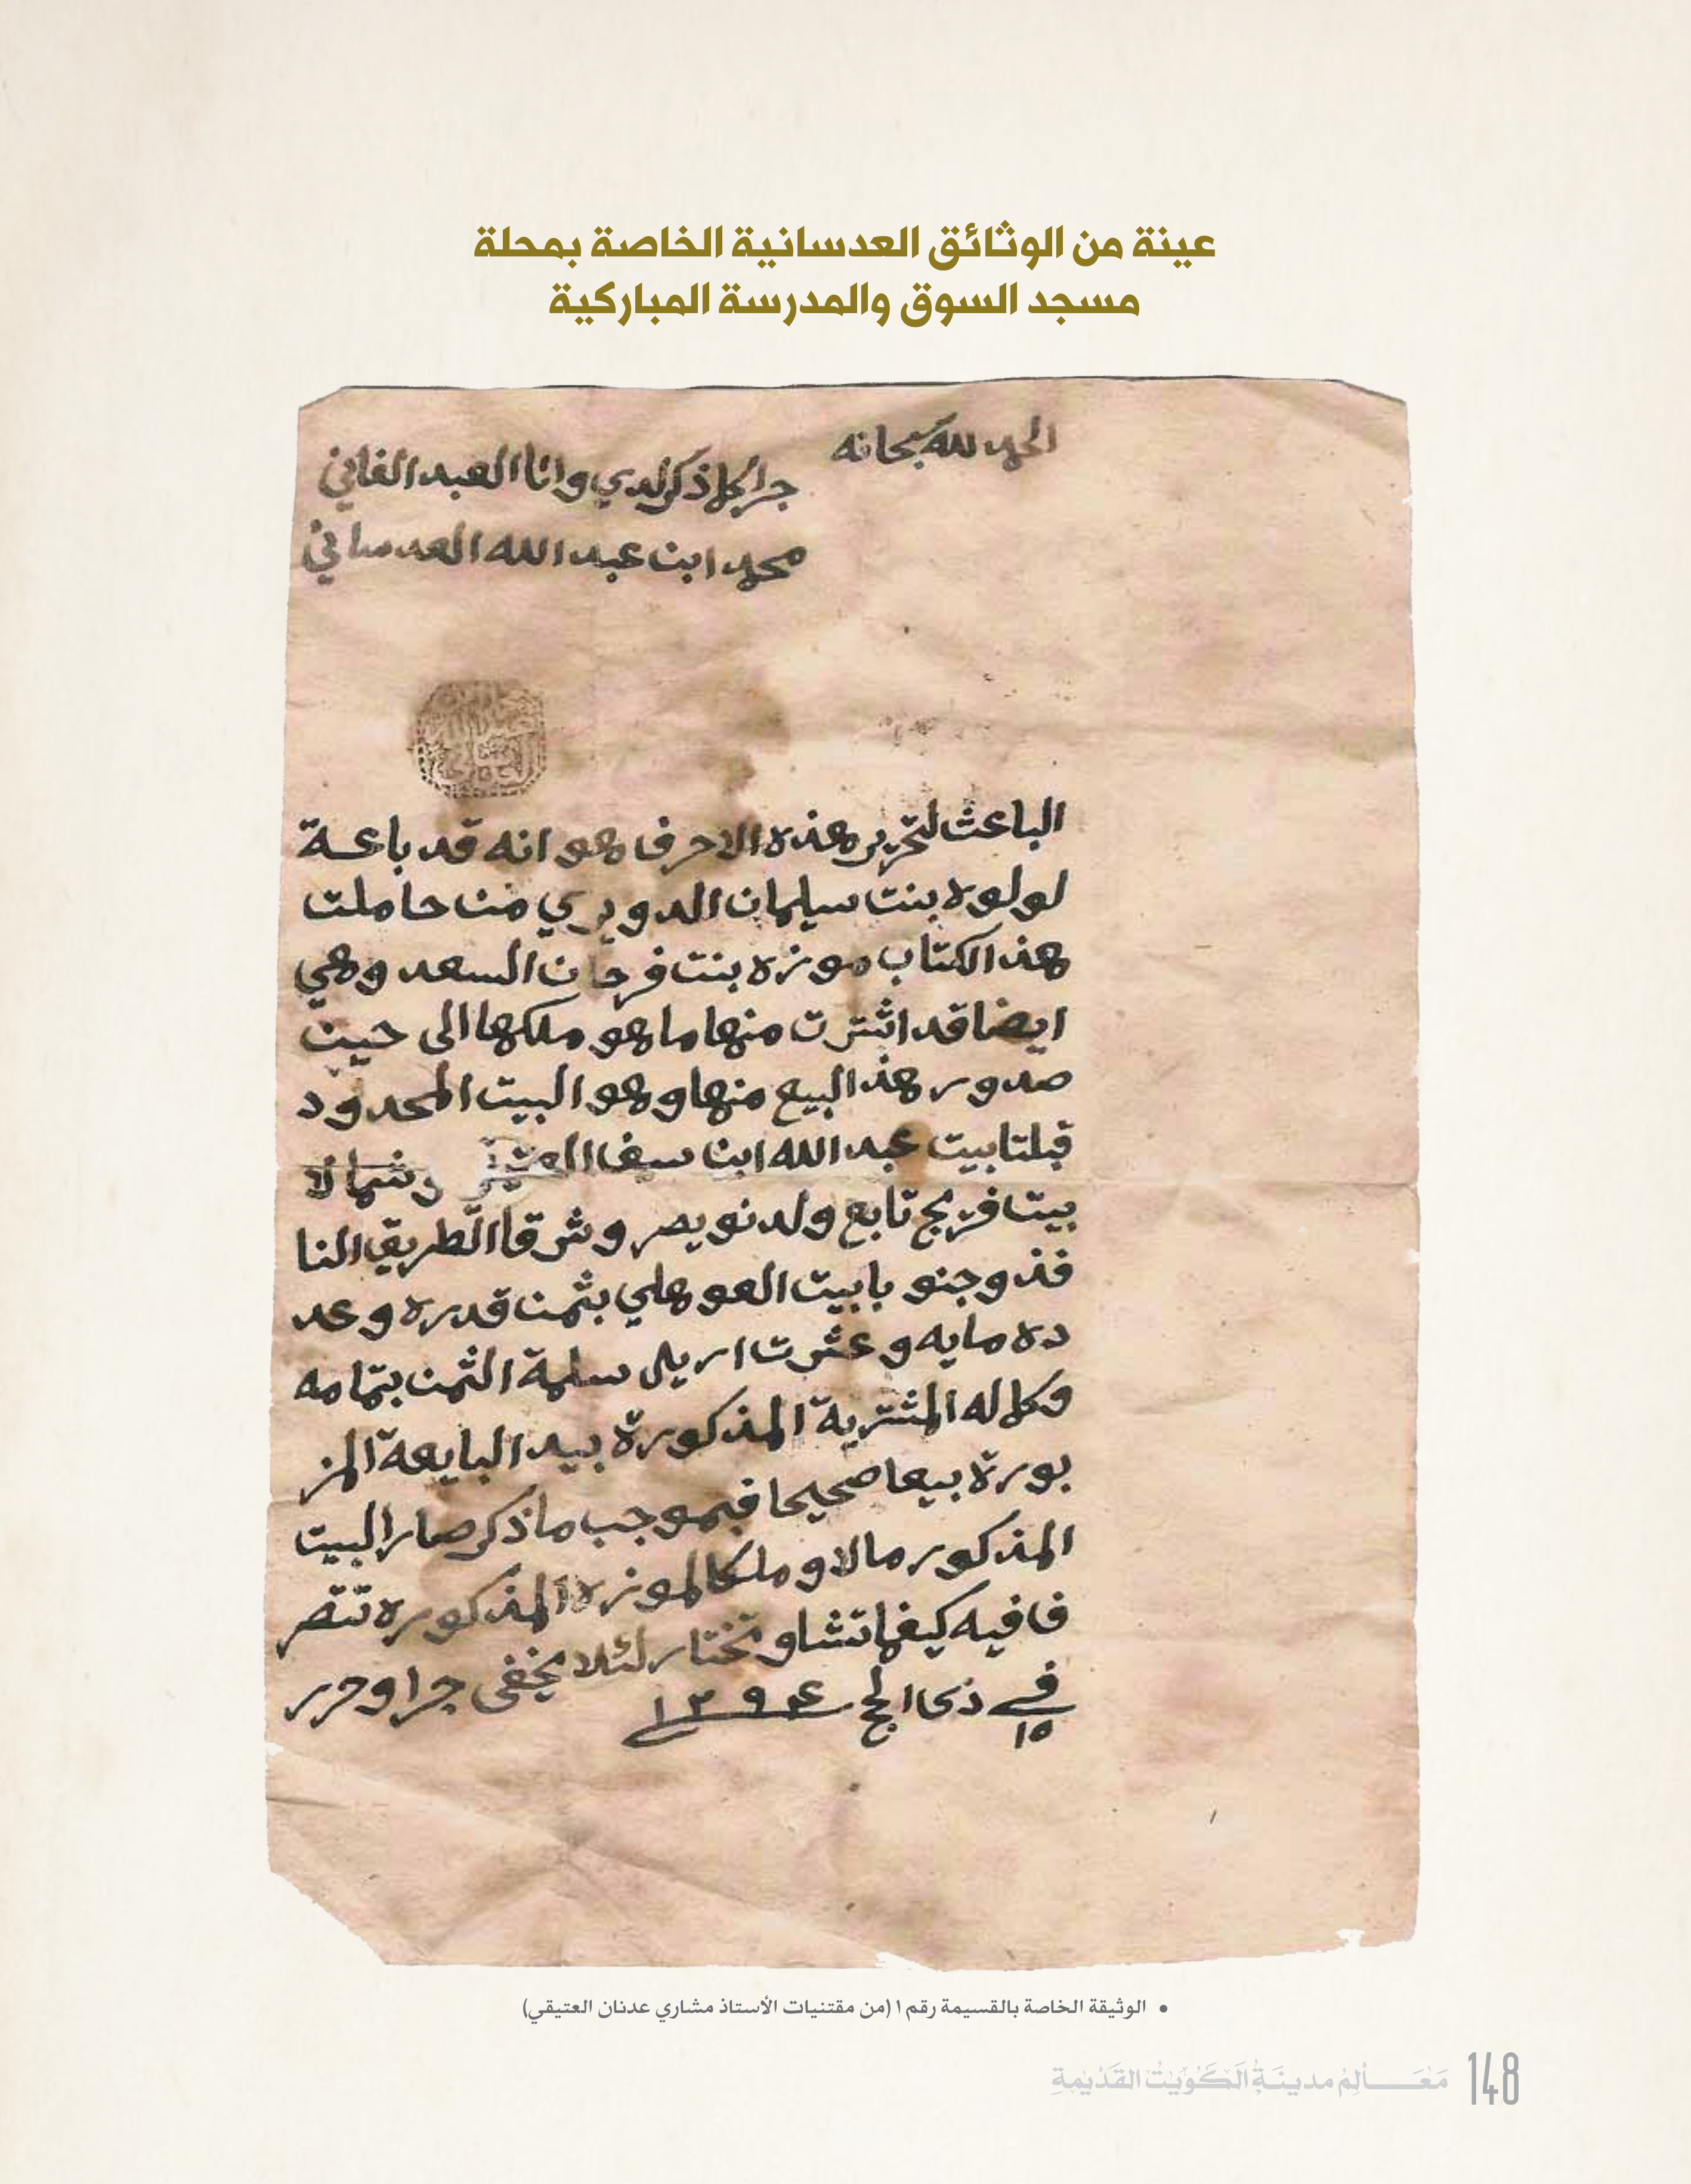 عينة من الوثائق العدسانية الخاصة بمحلة
مسجد السوق والمدرسة المباركية
الحمد لله سبحانه
جرا كلما ذكر لدي وانا العبد الفاني
محمد ابن عبد الله العدساني
الباعث لتحرير هذه الاحرف هو انه قد باعة
لولوه بنت سليمان الدويري من حاملت
هذ الكتاب موزه بنت فرحان السعد وهي
ايضا قد اشترت منها ما هو ملكها الى حين
صدور هذ البيع منها وهو البيت المحدود
قبلتا بيت عبد الله ابن سيف وشمالا
بيت فريج تابع ولد نويصر وشرقا الطريق النا
فذ وجنوبا بيت العوهلي بثمن قدره وعد
ده مايه وعشرت اريل سلمة الثمن بتمامه
وكماله المشترية المذكورة بيد البايعة المز
بورة بيعا صحيحا فبموجب ما ذكر صار البيت
المذكور مالا وملكا لموزه المذكوره تتصر
فا فيه كيفما تشا وتختار لئلا يخفى جرا وحرر
في ١٥ ذي الحج
• الوثيقة الخاصة بالقسيمة رقم ١ (من مقتنيات الأستاذ مشاري عدنان العتيقي)
مَعَـالِمُ مدينَةِ الكُوَيْت القَدْيمَةِ 148